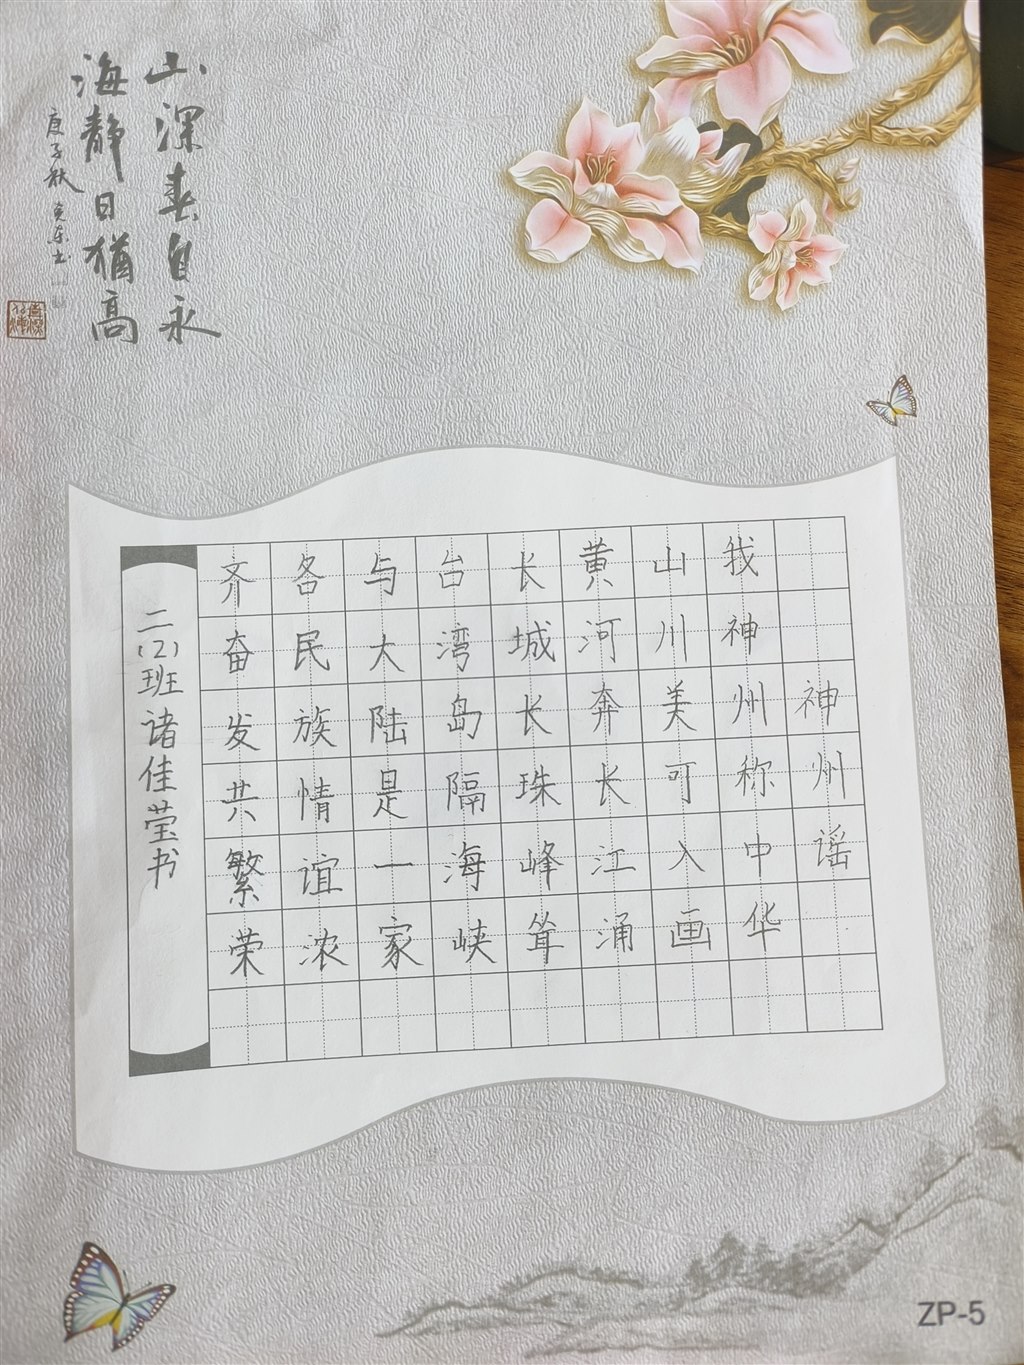 山深春自永
海静日犹高
庚子秋
神州谣
我神州称中华
山川美可入画
黄河奔长江涌
长城长珠峰耸
台湾岛隔海峡
与大陆是一家
各民族情谊浓
齐奋发共繁荣
二(2)班诸佳莹书
ZP-5